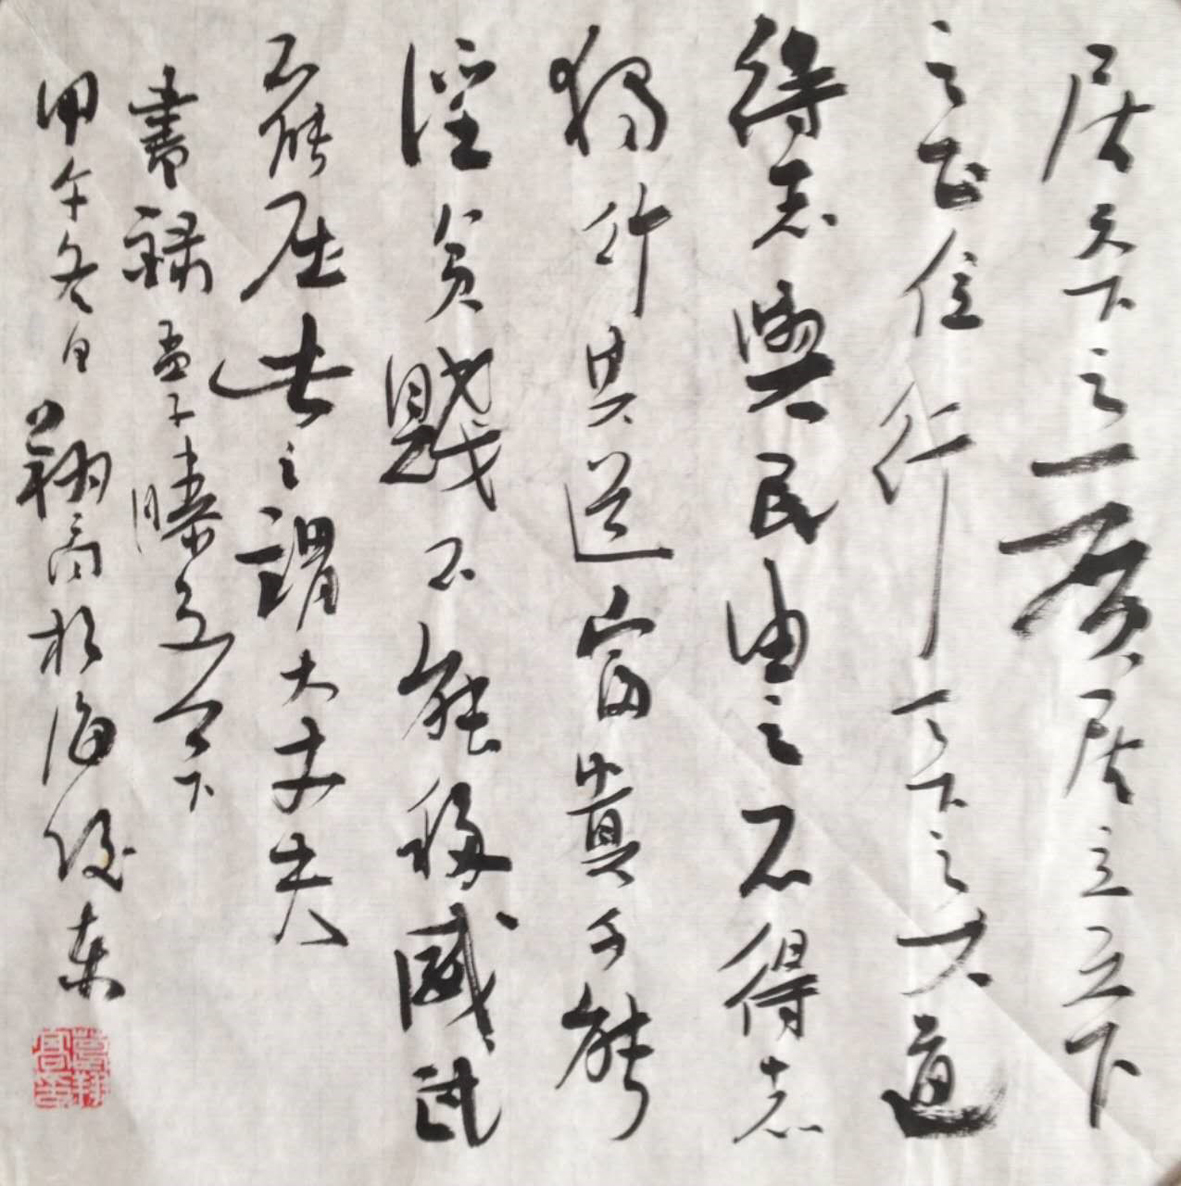 居天下之广居立立下
之正位行天下之大道
得志與民由之不得志
獨行其道富貴不能
淫貧賤不能移威武
不能屈此之謂大丈夫
書録孟子滕文公下
甲午冬月 高於海